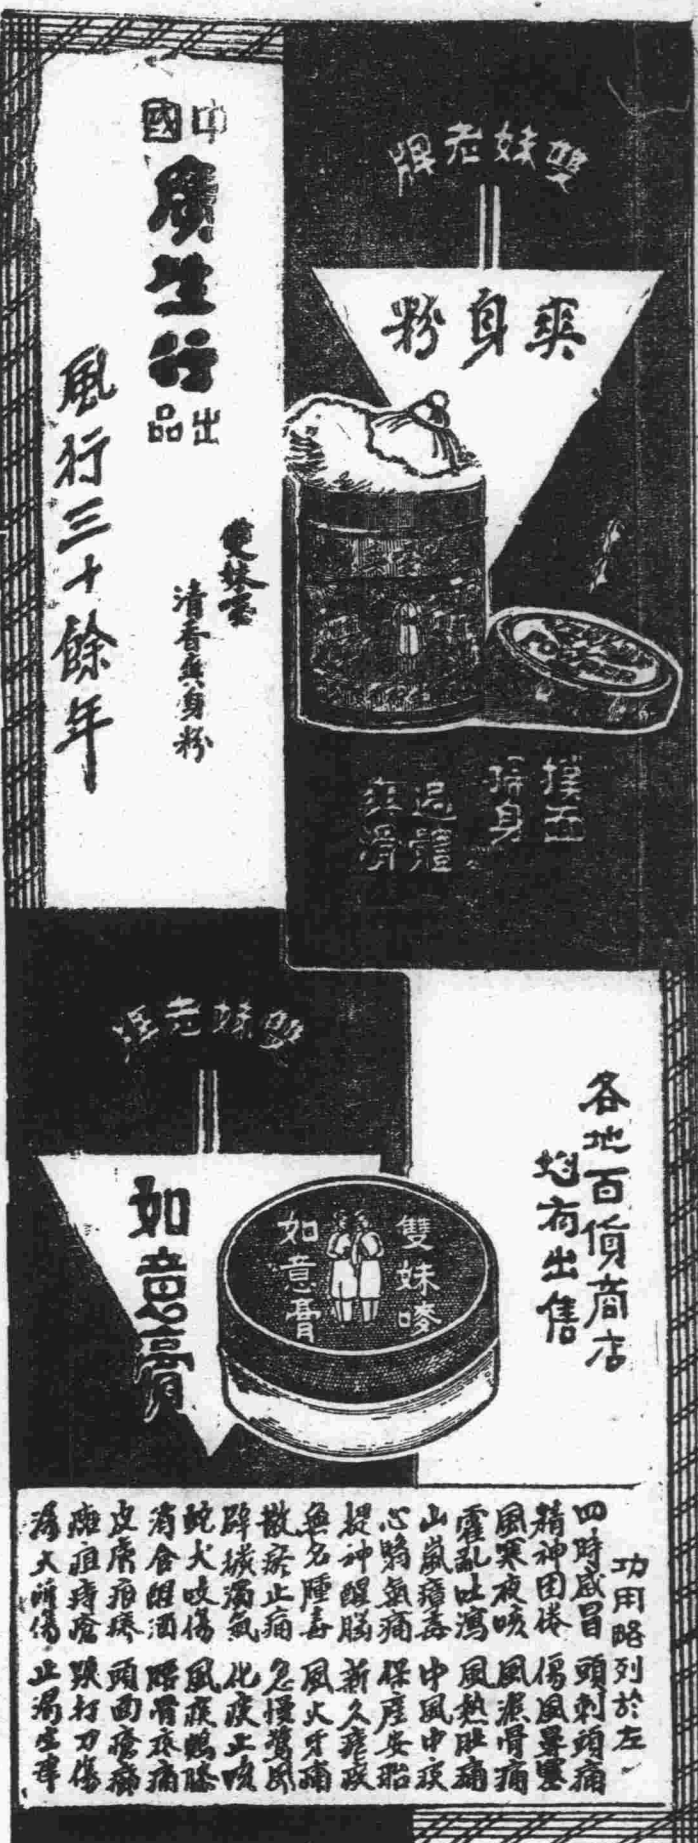 雙妹老牌
爽身粉
中國
廣生行
出品
風行三十餘年
雙妹嘜
清香爽身粉
撲面
掃身
遍體
爽滑
雙妹老牌
如意膏
雙妹嘜
如意膏
各地百貨商店
均有出售
功用略列於左
四時感冒 頭刺頭痛
精神困倦 傷風鼻塞
風寒夜咳 風濕骨痛
霍亂吐瀉 風熱肚痛
山嵐瘴毒 中風中痰
心鬱氣痛 保產安胎
提神醒腦 新久瘧疾
無名腫毒 風火牙痛
散瘀止痛 急慢驚風
辟穢濁氣 化痰止咳
蛇犬咬傷 風痰鶴膝
消食醒酒 腰骨疼痛
皮膚痕癢 頭面瘡癬
癰疽痔瘡 跌打刀傷
湯火所傷 止渴生津